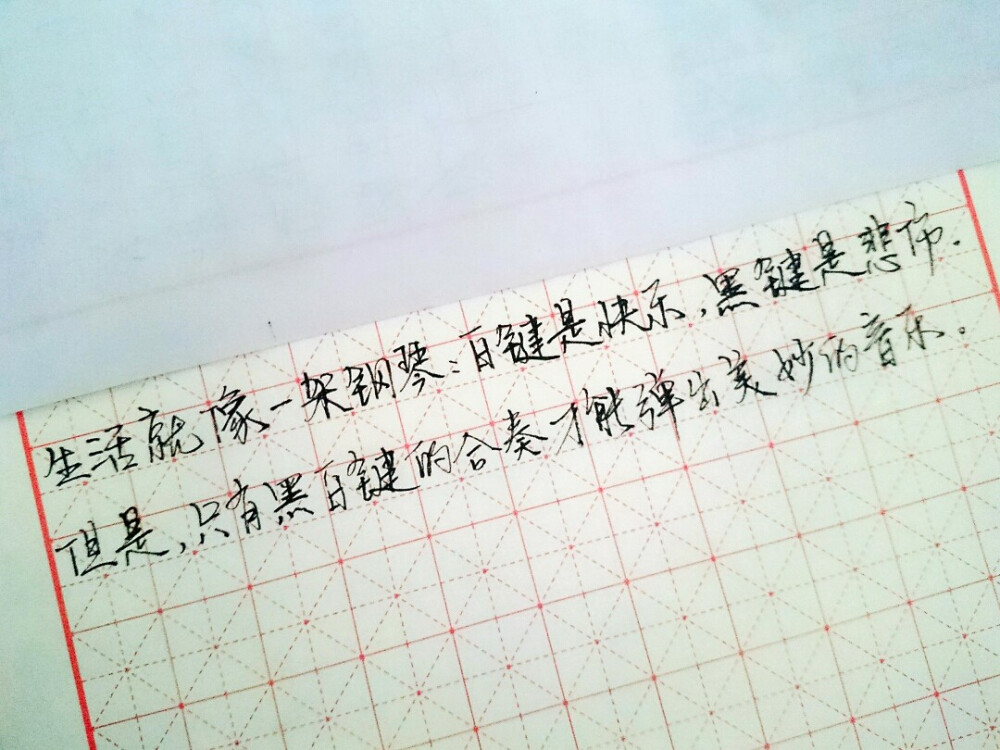 生活就像一架钢琴：白键是快乐，黑键是悲伤.
但是，只有黑白键的合奏才能弹出美妙的音乐。